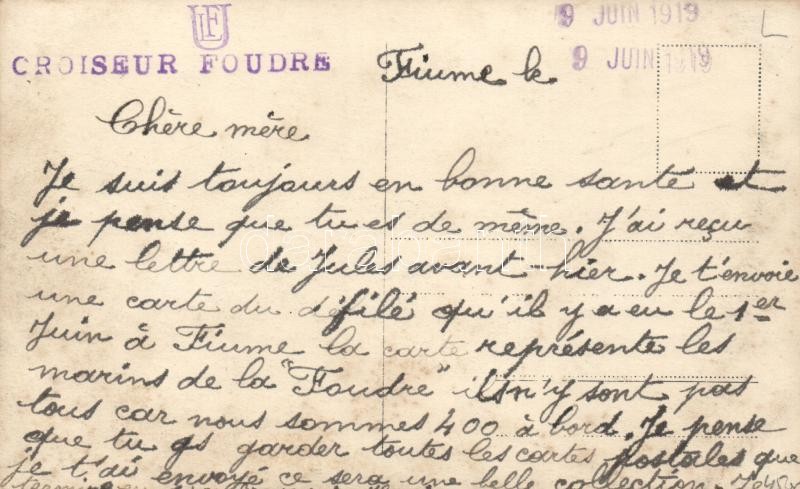 LEF
9 JUIN 1919
CROISEUR FOUDRE
Fiume le 9 JUIN 1919
Chère mère
Je suis toujours en bonne santé et
je pense que tu es de même. J'ai reçu
une lettre de Jules avant hier. Je t'envoie
une carte du défilé qu'il y a eu le 1er
Juin à Fiume la carte représente les
marins de la "Foudre" ils n'y sont pas
tous car nous sommes 400 à bord. Je pense
que tu as garder toutes les cartes postales que
je t'ai envoyé ce sera une belle collection. Je